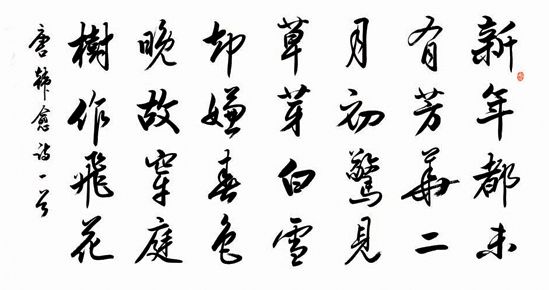 新年都未
有芳華二
月初驚見
草芽白雪
却嫌春色
晚故穿庭
樹作飛花
唐韓愈詩一首